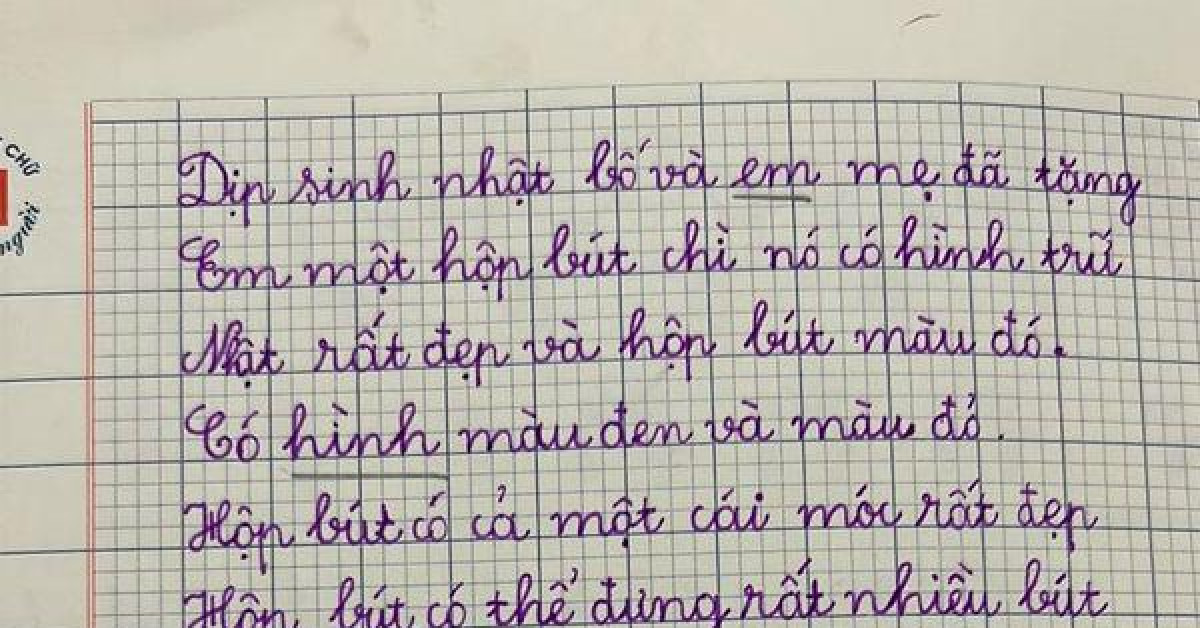 CHỮ
người
Dịp sinh nhật bố và em mẹ đã tặng
Em một hộp bút chì nó có hình trữ
Nhật rất đẹp và hộp bút màu đó.
Có hình màu đen và màu đỏ.
Hộp bút có cả một cái móc rất đẹp
Hộp bút có thể đựng rất nhiều bút